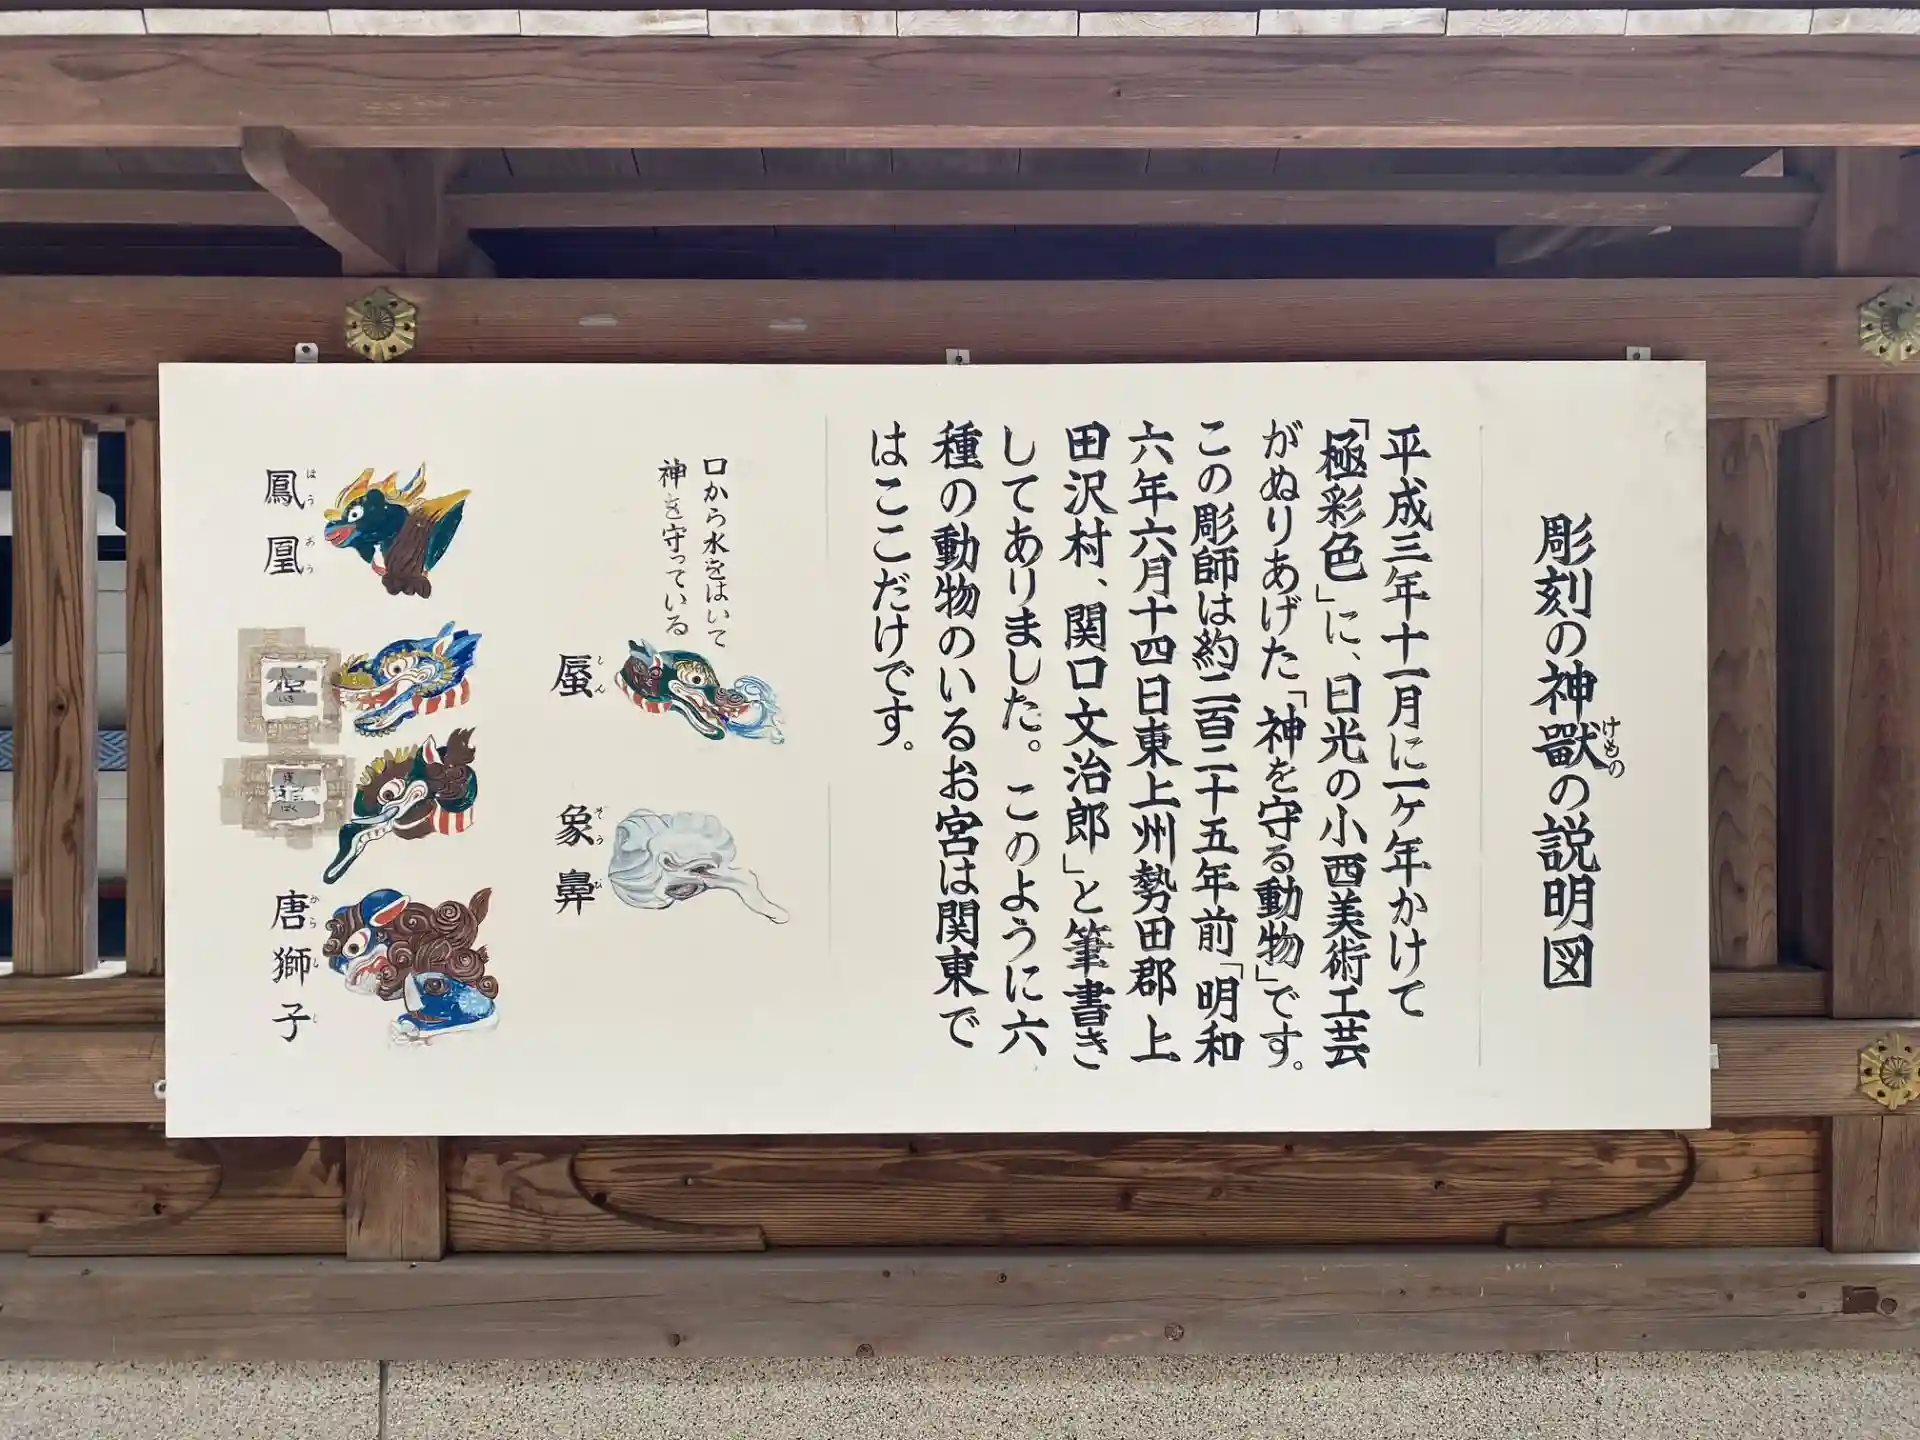 彫刻の神獣の説明図
けもの
平成三年十一月に一ケ年かけて
「極彩色」に、日光の小西美術工芸
がぬりあげた「神を守る動物」です。
この彫師は約二百二十五年前「明和
六年六月十四日東上州勢田郡上
田沢村、関口文治郎」と筆書き
してありました。このように六
種の動物のいるお宮は関東で
はここだけです。
口から水をはいて
神を守っている
蜃
しん
象鼻
ぞうび
鳳凰
ほうおう
唐獅子
からしし